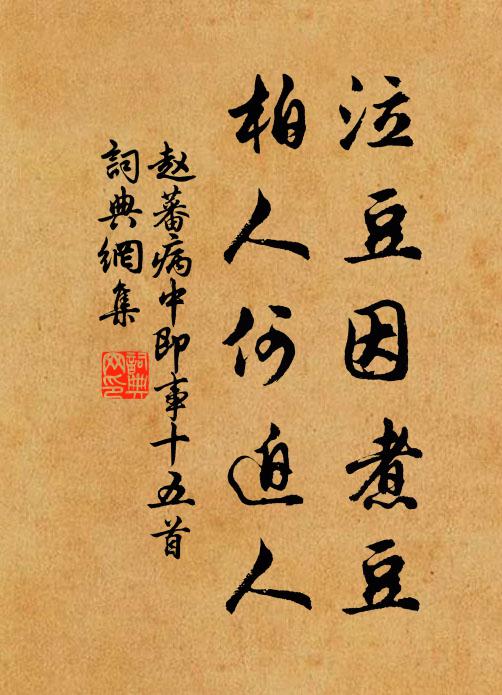 泣豆因煮豆
柏人何迫人
赵蕃病中即事十五首
詞典網集
詞典网印